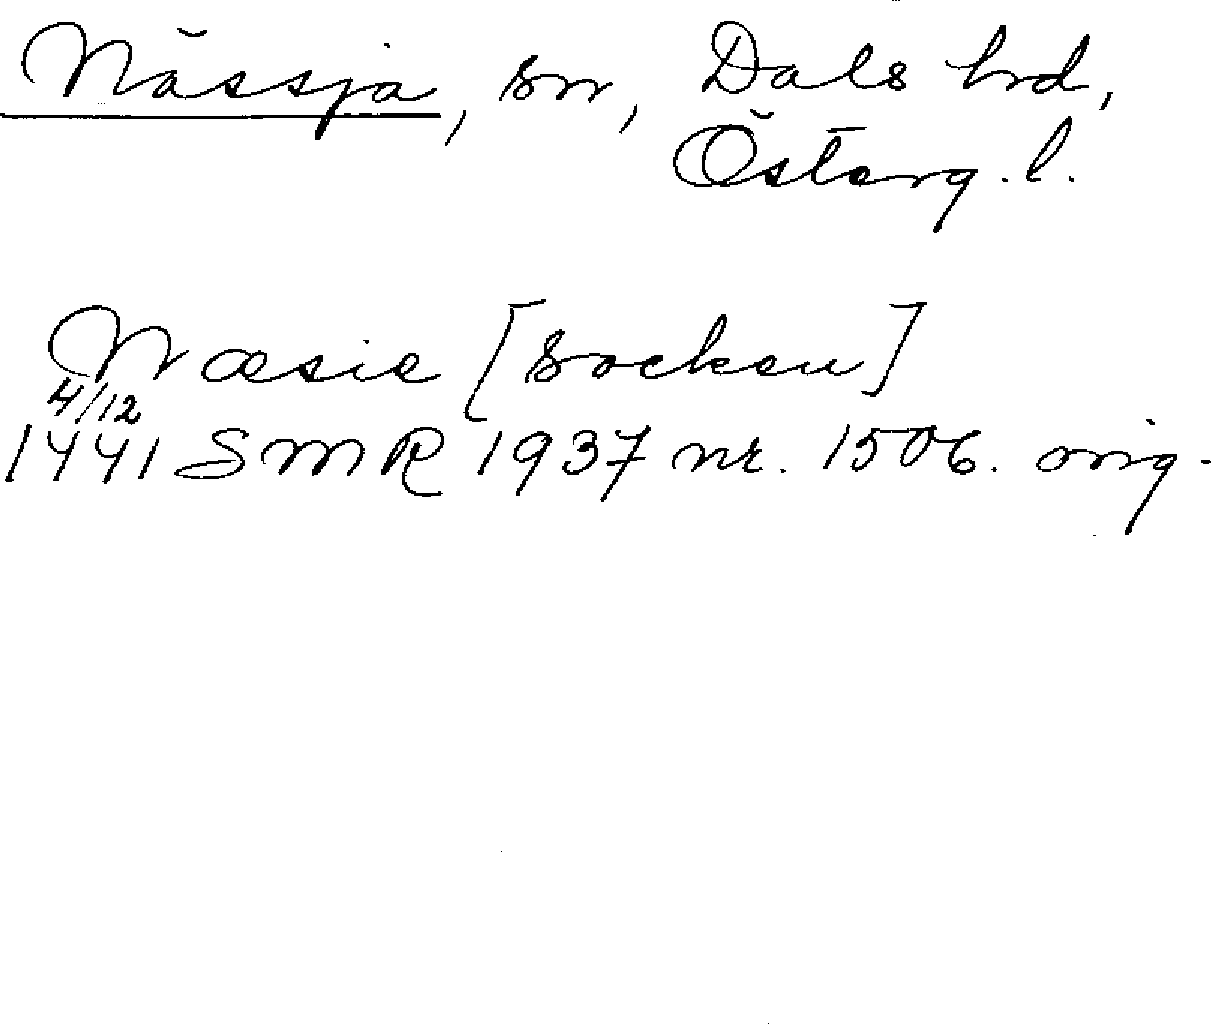 Nässja, sn, Dals hrd,
Österg. l.
Næsie [socken]
4/12
1441 SMR 1937 nr. 1506. orig.